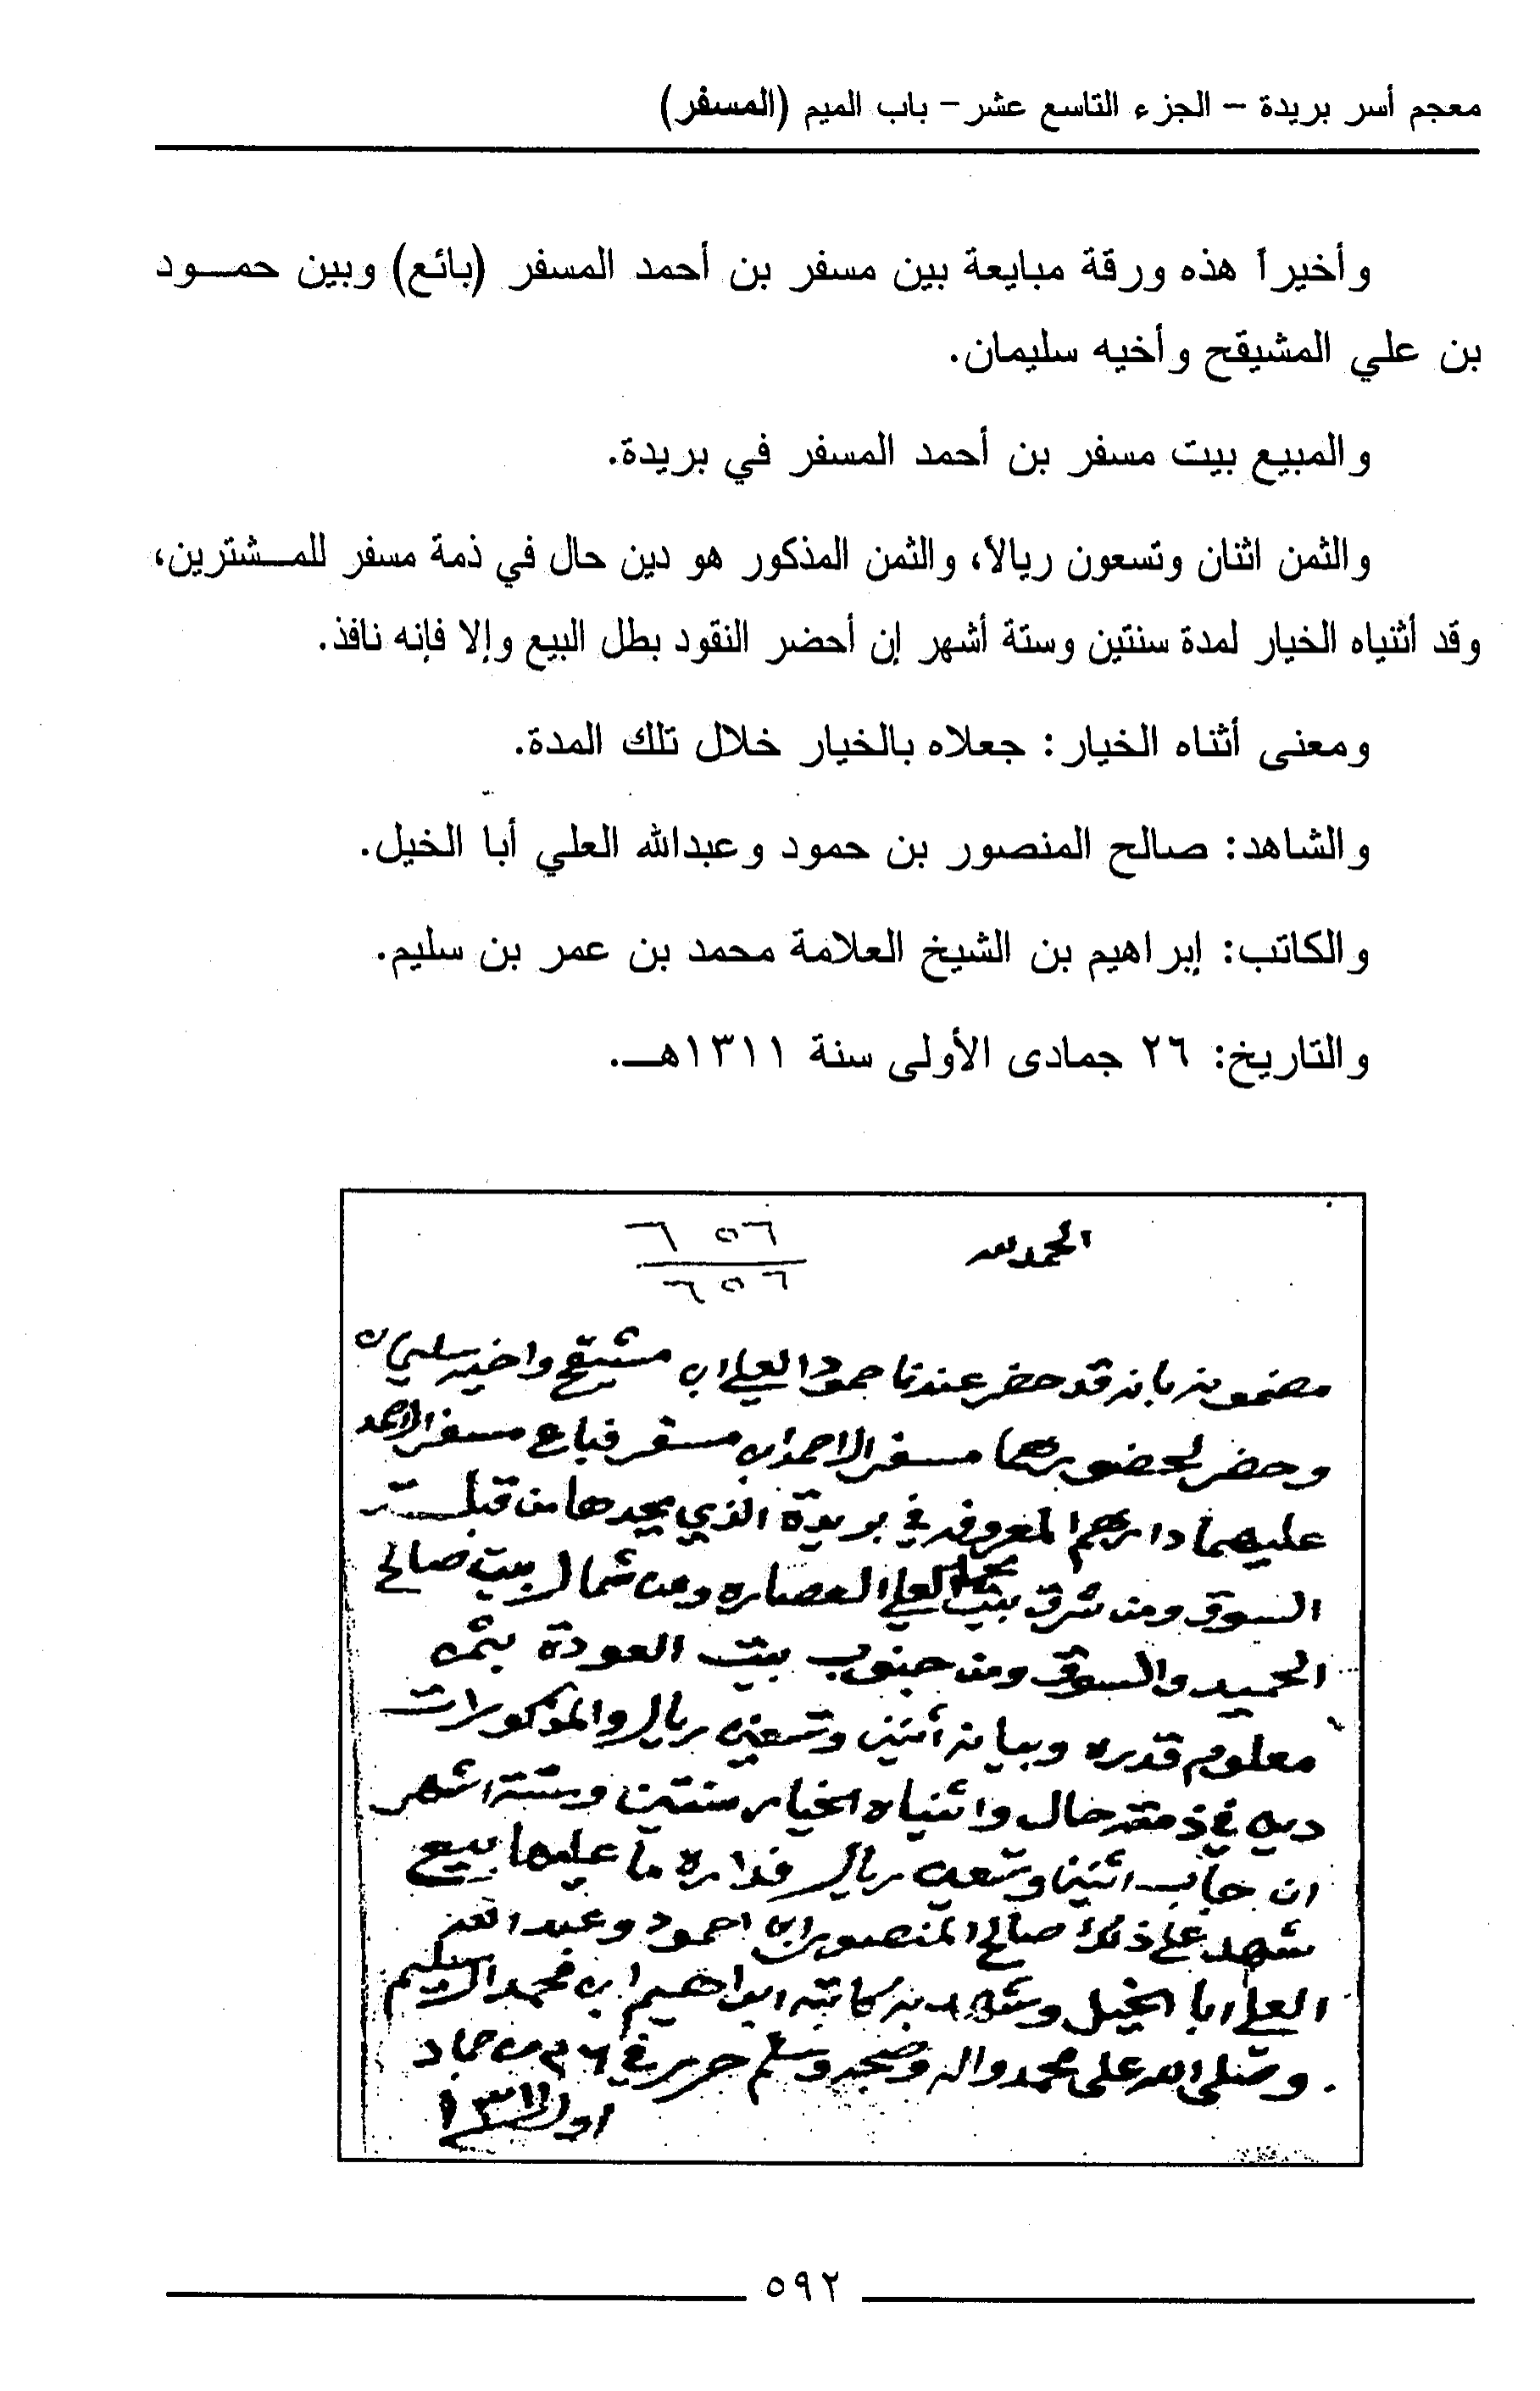 معجم أسر بريدة – الجزء التاسع عشر – باب الميم (المسفر)
وأخيراً هذه ورقة مبايعة بين مسفر بن أحمد المسفر (بائع) وبين حمـــود
بن علي المشيقح وأخيه سليمان.
والمبيع بيت مسفر بن أحمد المسفر في بريدة.
والثمن اثنان وتسعون ريالاً، والثمن المذكور هو دين حال في ذمة مسفر للمـــشترين،
وقد أثنياه الخيار لمدة سنتين وستة أشهر إن أحضر النقود بطل البيع وإلا فإنه نافذ.
ومعنى أثناه الخيار: جعلاه بالخيار خلال تلك المدة.
والشاهد: صالح المنصور بن حمود وعبدالله العلي أبا الخيل.
والكاتب: إبراهيم بن الشيخ العلامة محمد بن عمر بن سليم.
والتاريخ: ٢٦ جمادى الأولى سنة ١٣١١هـــ.
الحمد لله
مضمونه بانه قد حضر عندنا حمود العلي ابن مشيقح واخيه سليمان
وحضر لحضورهما مسفر الاحمد ابن مسفر فباع مسفر الاحمد
عليهما دارهم المعروفه في بريدة الذي يحدها من قبلت
السوق ومن شرق بيت العلي العصاره ومن شمال بيت صالح
الحميد والسوق ومن جنوب بيت العودة بثمن
معلوم قدره وبيانه أثنين وتسعين ريال والمذكورات
دين في ذمته حال واثنياه الخيار سنتين وستة اشهر
ان جاب اثنين وتسعين ريال فداره ما عليها بيع
شهد على ذلك صالح المنصور ابن احمود وعبد الله
العلي ابا الخيل وشهد به كاتبه ابراهيم ابن محمد السليم
وصلى الله على محمد واله وصحبه وسلم حرر في ٢٦ من جماد
اول ١٣١١
٥٩٢